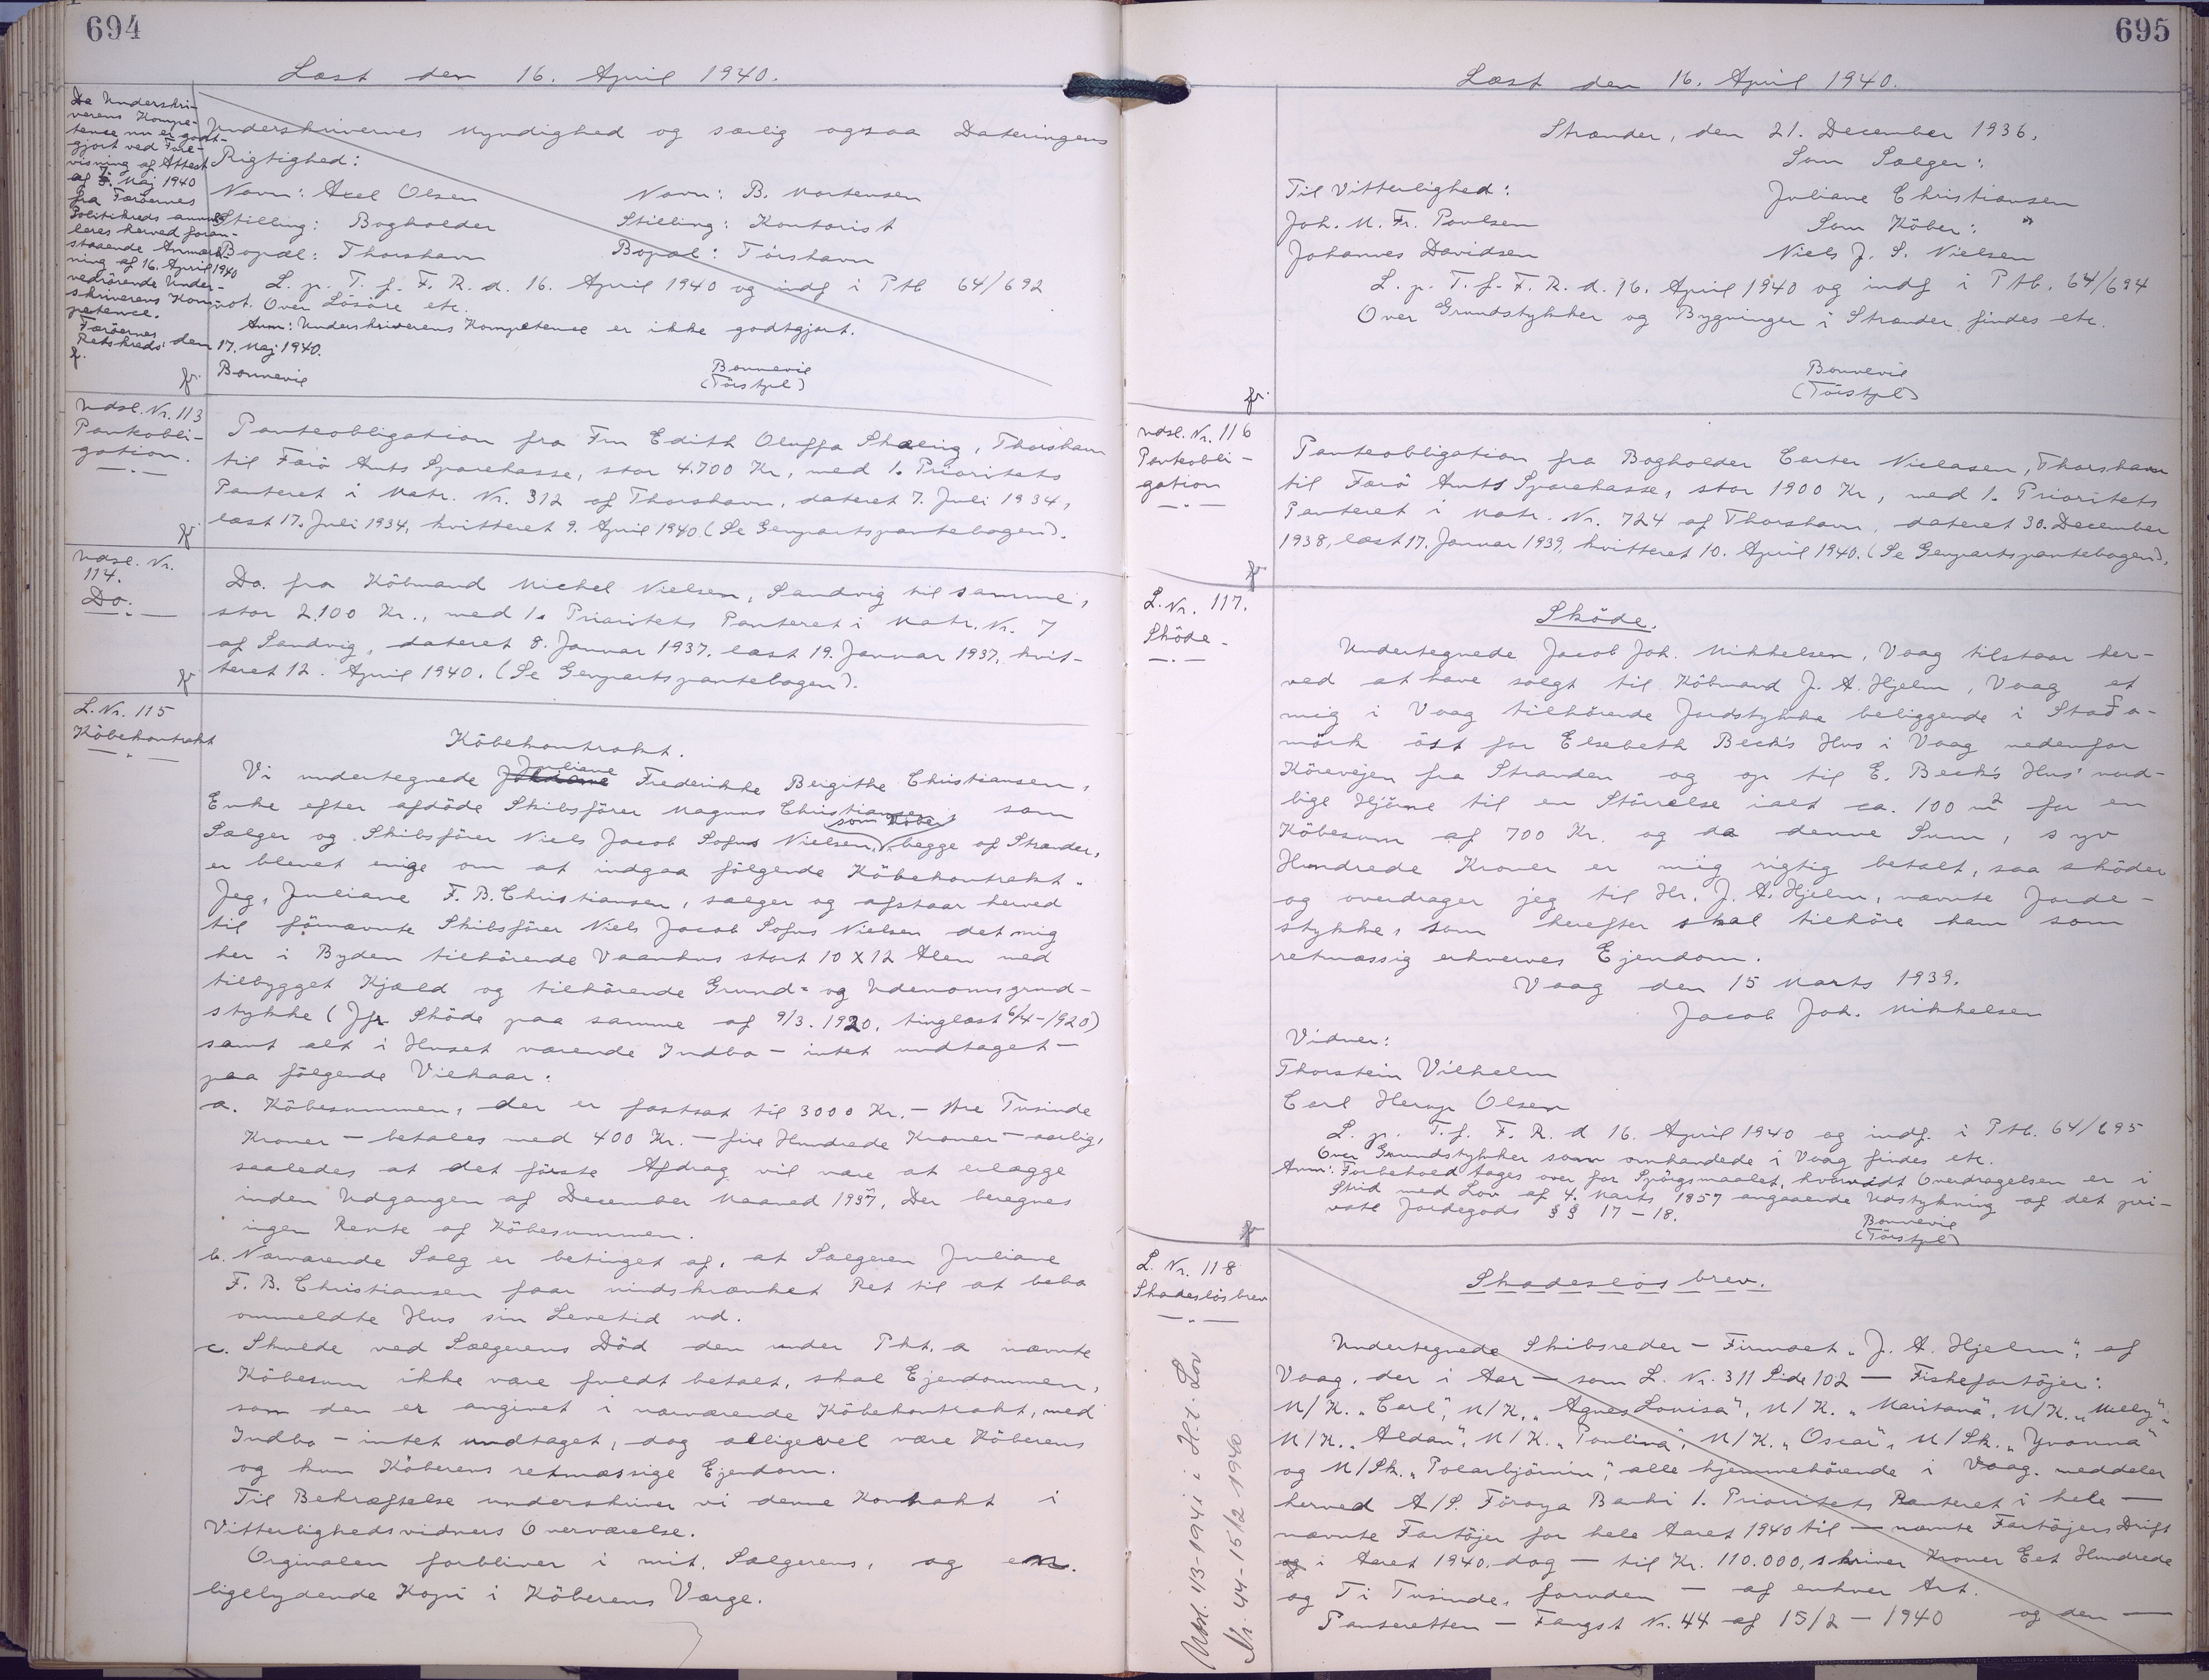 694
Læst den 16. April 1940.
Da Underskri-
verens Kompe-
tence nu er godt-
gjort ved Fore-
visning af Attest
af 7. Maj 1940
fra Færøernes
Politikreds annul-
leres herved foran-
staaende Anmærk-
ning af 16. April 1940
vedrörende Under-
skriverens Kom-
petence.
Færöernes
Retskreds, den 17. Maj 1940.
Bonnevie
Underskrivernes Myndighed og særlig ogsaa Dateringens
Rigtighed:
Navn: Axel Olsen Navn: B. Mortensen
Stilling: Bogholder Stilling: Kontorist
Bopæl: Thorshavn Bopæl: Tórshavn
L. p. T. f. F. R. d. 16. April 1940 og indf i Ptb 64/692
not. Over Lösöre etc.
Anm: Underskriverens Kompetence er ikke godtgjort.
Bonnevie
(Tórstpl)
Udsl. Nr. 113
Panteobli-
gation.
Panteobligation fra Fru Edith Oluffa Skælig, Thorshavn
til Færö Amts Sparekasse, stor 4.700 Kr, med 1. Prioritets
Panteret i Matr. Nr. 312 af Thorshavn, dateret 7. Juli 1934,
læst 17. Juli 1934, kvitteret 9. April 1940. (Se Genpartspantebogen).
Udsl. Nr.
114.
Do.
Do. fra Köbmand Michel Nielsen, Sandvig til samme,
stor 2.100 Kr., med 1. Prioritets Panteret i Matr. Nr. 7
af Sandvig, dateret 8. Januar 1937, læst 19. Januar 1937, kvit-
teret 12. April 1940. (Se Genpartspantebogen).
L. Nr. 115
Köbekontrakt
Köbekontrakt.
Juliane
Vi undertegnede Frederikke Bergithe Christiansen,
Enke efter afdöde Skibsförer Magnus Christiansen som
som Köber
Sælger og Skibsförer Niels Jacob Sofus Nielsen, begge af Strænder,
er blevet enige om at indgaa fölgende Köbekontrakt.
Jeg, Juliane F. B. Christiansen, sælger og afstaar herved
til förnævnte Skibsförer Niels Jacob Sofus Nielsen det mig
her i Byden tilhörende Vaanhus stort 10 X 12 Alen med
tilbygget Kjæld og tilhörende Grund- og Udenomsgrund-
stykke (Jfr. Sköde paa samme af 9/3. 1920, tinglæst 6/4-1920)
samt alt i Huset værende Indbo - intet undtaget -
paa fölgende Vilkaar:
a. Köbesummen, der er fastsat til 3000 Kr. - tre Tusinde
Kroner - betales med 400 Kr. - fire Hundrede Kroner - aarlig,
saaledes at det förste Afdrag vil være at erlægge
inden Udgangen af December Maaned 1937. Der beregnes
ingen Rente af Köbesummen.
b. Nærværende Salg er betinget af, at Sælgeren Juliane
F. B. Christiansen faar uindskrænket Ret til at bebo
ommeldte Hus sin Levetid ud.
c. Skulde ved Sælgerens Död den under Pkt. a nævnte
Köbesum ikke være fuldt betalt, skal Ejendommen,
som den er angivet i nærværende Köbekontrakt, med
Indbo - intet undtaget, dog alligevel være Köberens
og kun Köberens retmæssige Ejendom.
Til Bekræftelse underskriver vi denne Kontrakt i
Vitterlighedsvidners Overværelse.
Orginalen forbliver i mit, Sælgerens, og en.
ligelydende Kopi i Köberens Værge.
695
Læst den 16. April 1940.
Strænder, den 21. December 1936.
Som Sælger:
Til Vitterlighed: Juliane Christiansen
Joh. M. Fr. Poulsen Som Köber:
Johannes Davidsen Niels J. S. Nielsen
L. p. T. f. F. R. d. 16. April 1940 og indf i Ptb. 64/694
Over Grundstykker og Bygninger i Strænder findes etc.
Bonnevie
(Tórstpl)
Udsl. Nr. 116
Panteobli-
gation
Panteobligation fra Bogholder Carter Nielasen, Thorshavn
til Færö Amts Sparekasse, stor 1900 Kr, med 1. Prioritets
Panteret i Matr. Nr. 724 af Thorshavn, dateret 30. December
1938, læst 17. Januar 1939, kvitteret 10. April 1940. (Se Genpartspantebogen).
L. Nr. 117.
Sköde.
Sköde.
Undertegnede Jacob Joh. Mikkelsen, Vaag tilstaar her-
ved at have solgt til Köbmand J. A. Hjelm, Vaag et
mig i Vaag tilhörende Jordstykke beliggende i Staða-
mörk öst for Elsebeth Beck's Hus i Vaag nedenfor
Körevejen fra Stranden og op til E. Beck's Hus' nord-
lige Hjörne til en Störrelse ialt ca. 100 m² for en
Köbesum af 700 Kr. og da denne Sum, syv
Hundrede Kroner er mig rigtig betalt, saa sköder
og overdrager jeg til Hr. J. A. Hjelm, nævnte Jorde-
stykke, som herefter skal tilhöre ham som
retmæssig erhvervet Ejendom.
Vaag den 15 Marts 1939.
Jacob Joh. Mikkelsen
Vidner:
Thorstein Vilhelm
Carl Herup Olsen
L. p. T. f. F. R. d 16. April 1940 og indf. i Ptb. 64/695
Over Grundstykker som omhandlede i Vaag findes etc.
Anm: Forbehold tages over for Spörgsmaalet, hvorvidt Overdragelsen er i
Strid med Lov af 4. Marts 1857 angaaende Udstykning af det pri-
vate Jordegods §§ 17-18.
Bonnevie
(Tórstpl)
L. Nr. 118
Skadeslösbrev
Udsl. 1/3-1941 i H. t. Lov
Nr. 44-15/2 1940
Skadeslösbrev.
Undertegnede Skibsreder - Firmaet "J. A. Hjelm", af
Vaag, der i Aar - som L. Nr. 311 Side 102 - Fiskefartöjer:
M/K. "Carl", M/K. "Agnes Louisa", M/K. "Maritana", M/K. "Melly",
M/K. "Aldan", M/K. "Paulina", M/K. "Oscar", M/Sk. "Yvonna"
og M/Sk. "Polarbjörnin", alle hjemmehörende i Vaag, meddeler
herved A/S. Föroya Banki 1. Prioritets Panteret i hele -
nævnte Fartöjer for hele Aaret 1940 til - nævnte Fartöjers Drift
og i Aaret 1940, dog - til Kr. 110.000, skriver Kroner Eet Hundrede
og Ti Tusinde, foruden - af enhver Art.
Panteretten - Fangst Nr. 44 af 15/2 - 1940 og den -